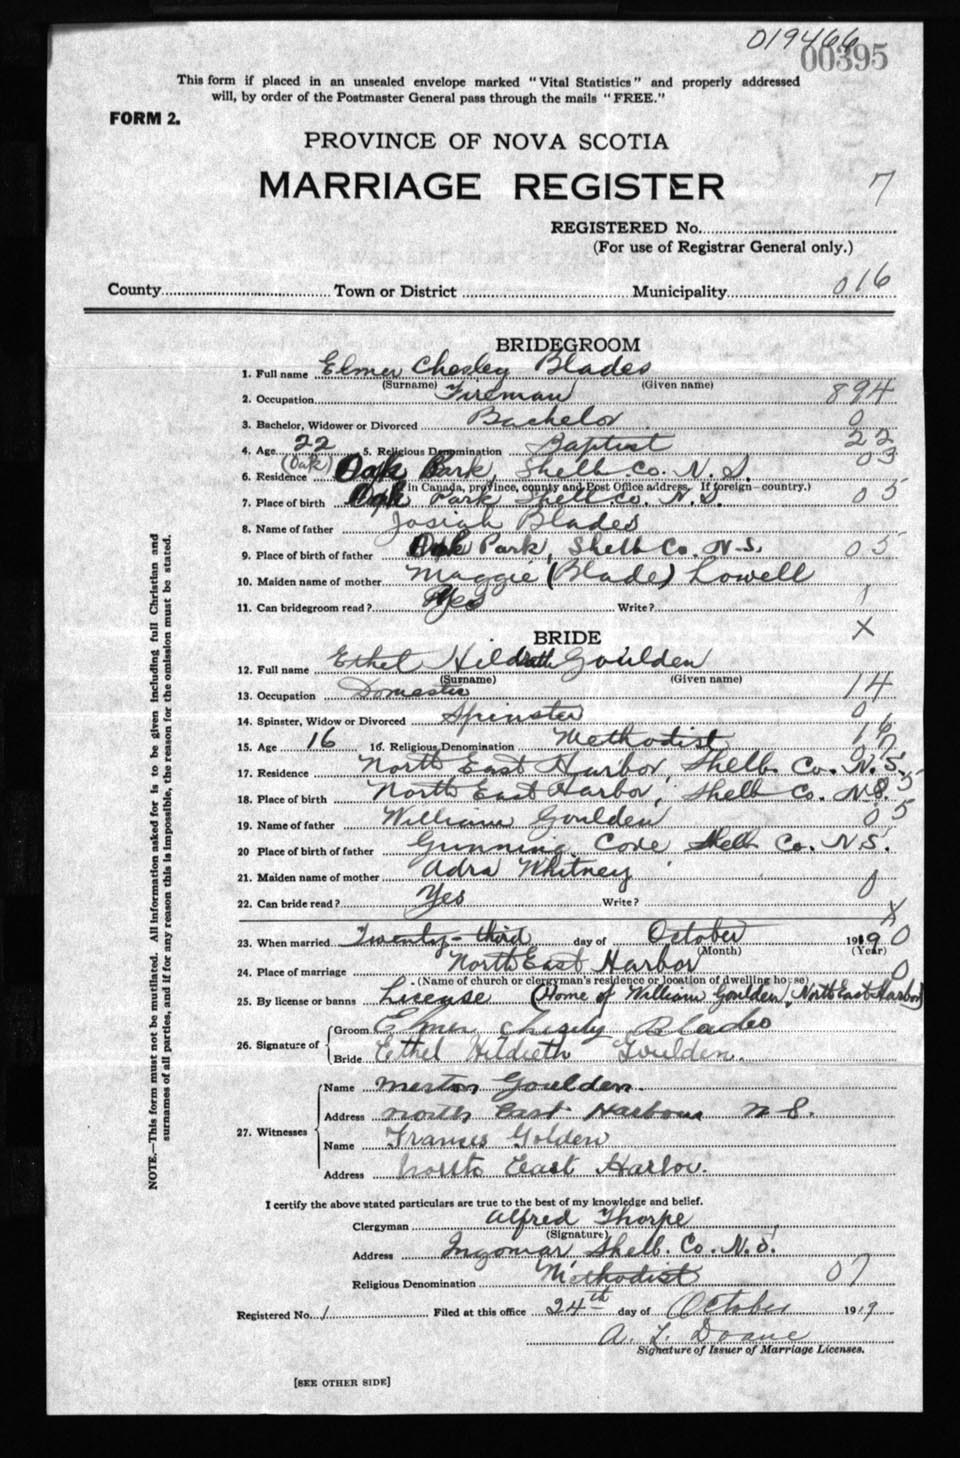 019466
00395
This form if placed in an unsealed envelope marked "Vital Statistics" and properly addressed
will, by order of the Postmaster General pass through the mails "FREE."
FORM 2.
PROVINCE OF NOVA SCOTIA
MARRIAGE REGISTER 7
REGISTERED No.
(For use of Registrar General only.)
County Town or District Municipality 016
BRIDEGROOM
1. Full name Elmer Chesley Blades
(Surname) (Given name)
2. Occupation Fireman 894
3. Bachelor, Widower or Divorced Bachelor 0
4. Age 22 5. Religious Denomination Baptist 22
(Oak) 03
6. Residence Oak Park, Shelb Co. N.S.
(If in Canada, province, county and Post Office address. If foreign—country.)
7. Place of birth Oak Park Shelb Co. N.S. 05
8. Name of father Josiah Blades
9. Place of birth of father Oak Park, Shelb Co. N.S. 05
10. Maiden name of mother Maggie (Blade) Lowell
11. Can bridegroom read? Yes Write? 1
X
BRIDE
12. Full name Ethel Hildreth Goulden
(Surname) (Given name)
13. Occupation Domestic 14
14. Spinster, Widow or Divorced Spinster 0
15. Age 16 16. Religious Denomination Methodist 16
17. Residence North East Harbor, Shelb. Co. N.S.
18. Place of birth North East Harbor, Shelb Co. N.S.
19. Name of father William Goulden 05
20 Place of birth of father Gunning Cove Shelb Co. N.S.
21. Maiden name of mother Adra Whitney
22. Can bride read? Yes Write? 0
X
23. When married Twenty-third day of October 1919 0
(Month) (Year)
24. Place of marriage North East Harbor 0
(Name of church or clergyman's residence or location of dwelling house)
25. By license or banns License (Home of William Goulden, North East Harbor)
26. Signature of Groom Elmer Chesley Blades
Bride Ethel Hildreth Goulden.
27. Witnesses
Name Merton Goulden.
Address North East Harbour N S.
Name Frances Golden
Address North East Harbor.
I certify the above stated particulars are true to the best of my knowledge and belief.
Clergyman Alfred Thorpe
(Signature)
Address Ingomar, Shelb. Co. N.S.
Religious Denomination Methodist 07
Registered No. 1 Filed at this office 24th day of October 1919
A. L. Doane
Signature of Issuer of Marriage Licenses.
[SEE OTHER SIDE]
NOTE.—This form must not be mutilated. All information asked for is to be given including full Christian and
surnames of all parties, and if for any reason this is impossible, the reason for the omission must be stated.